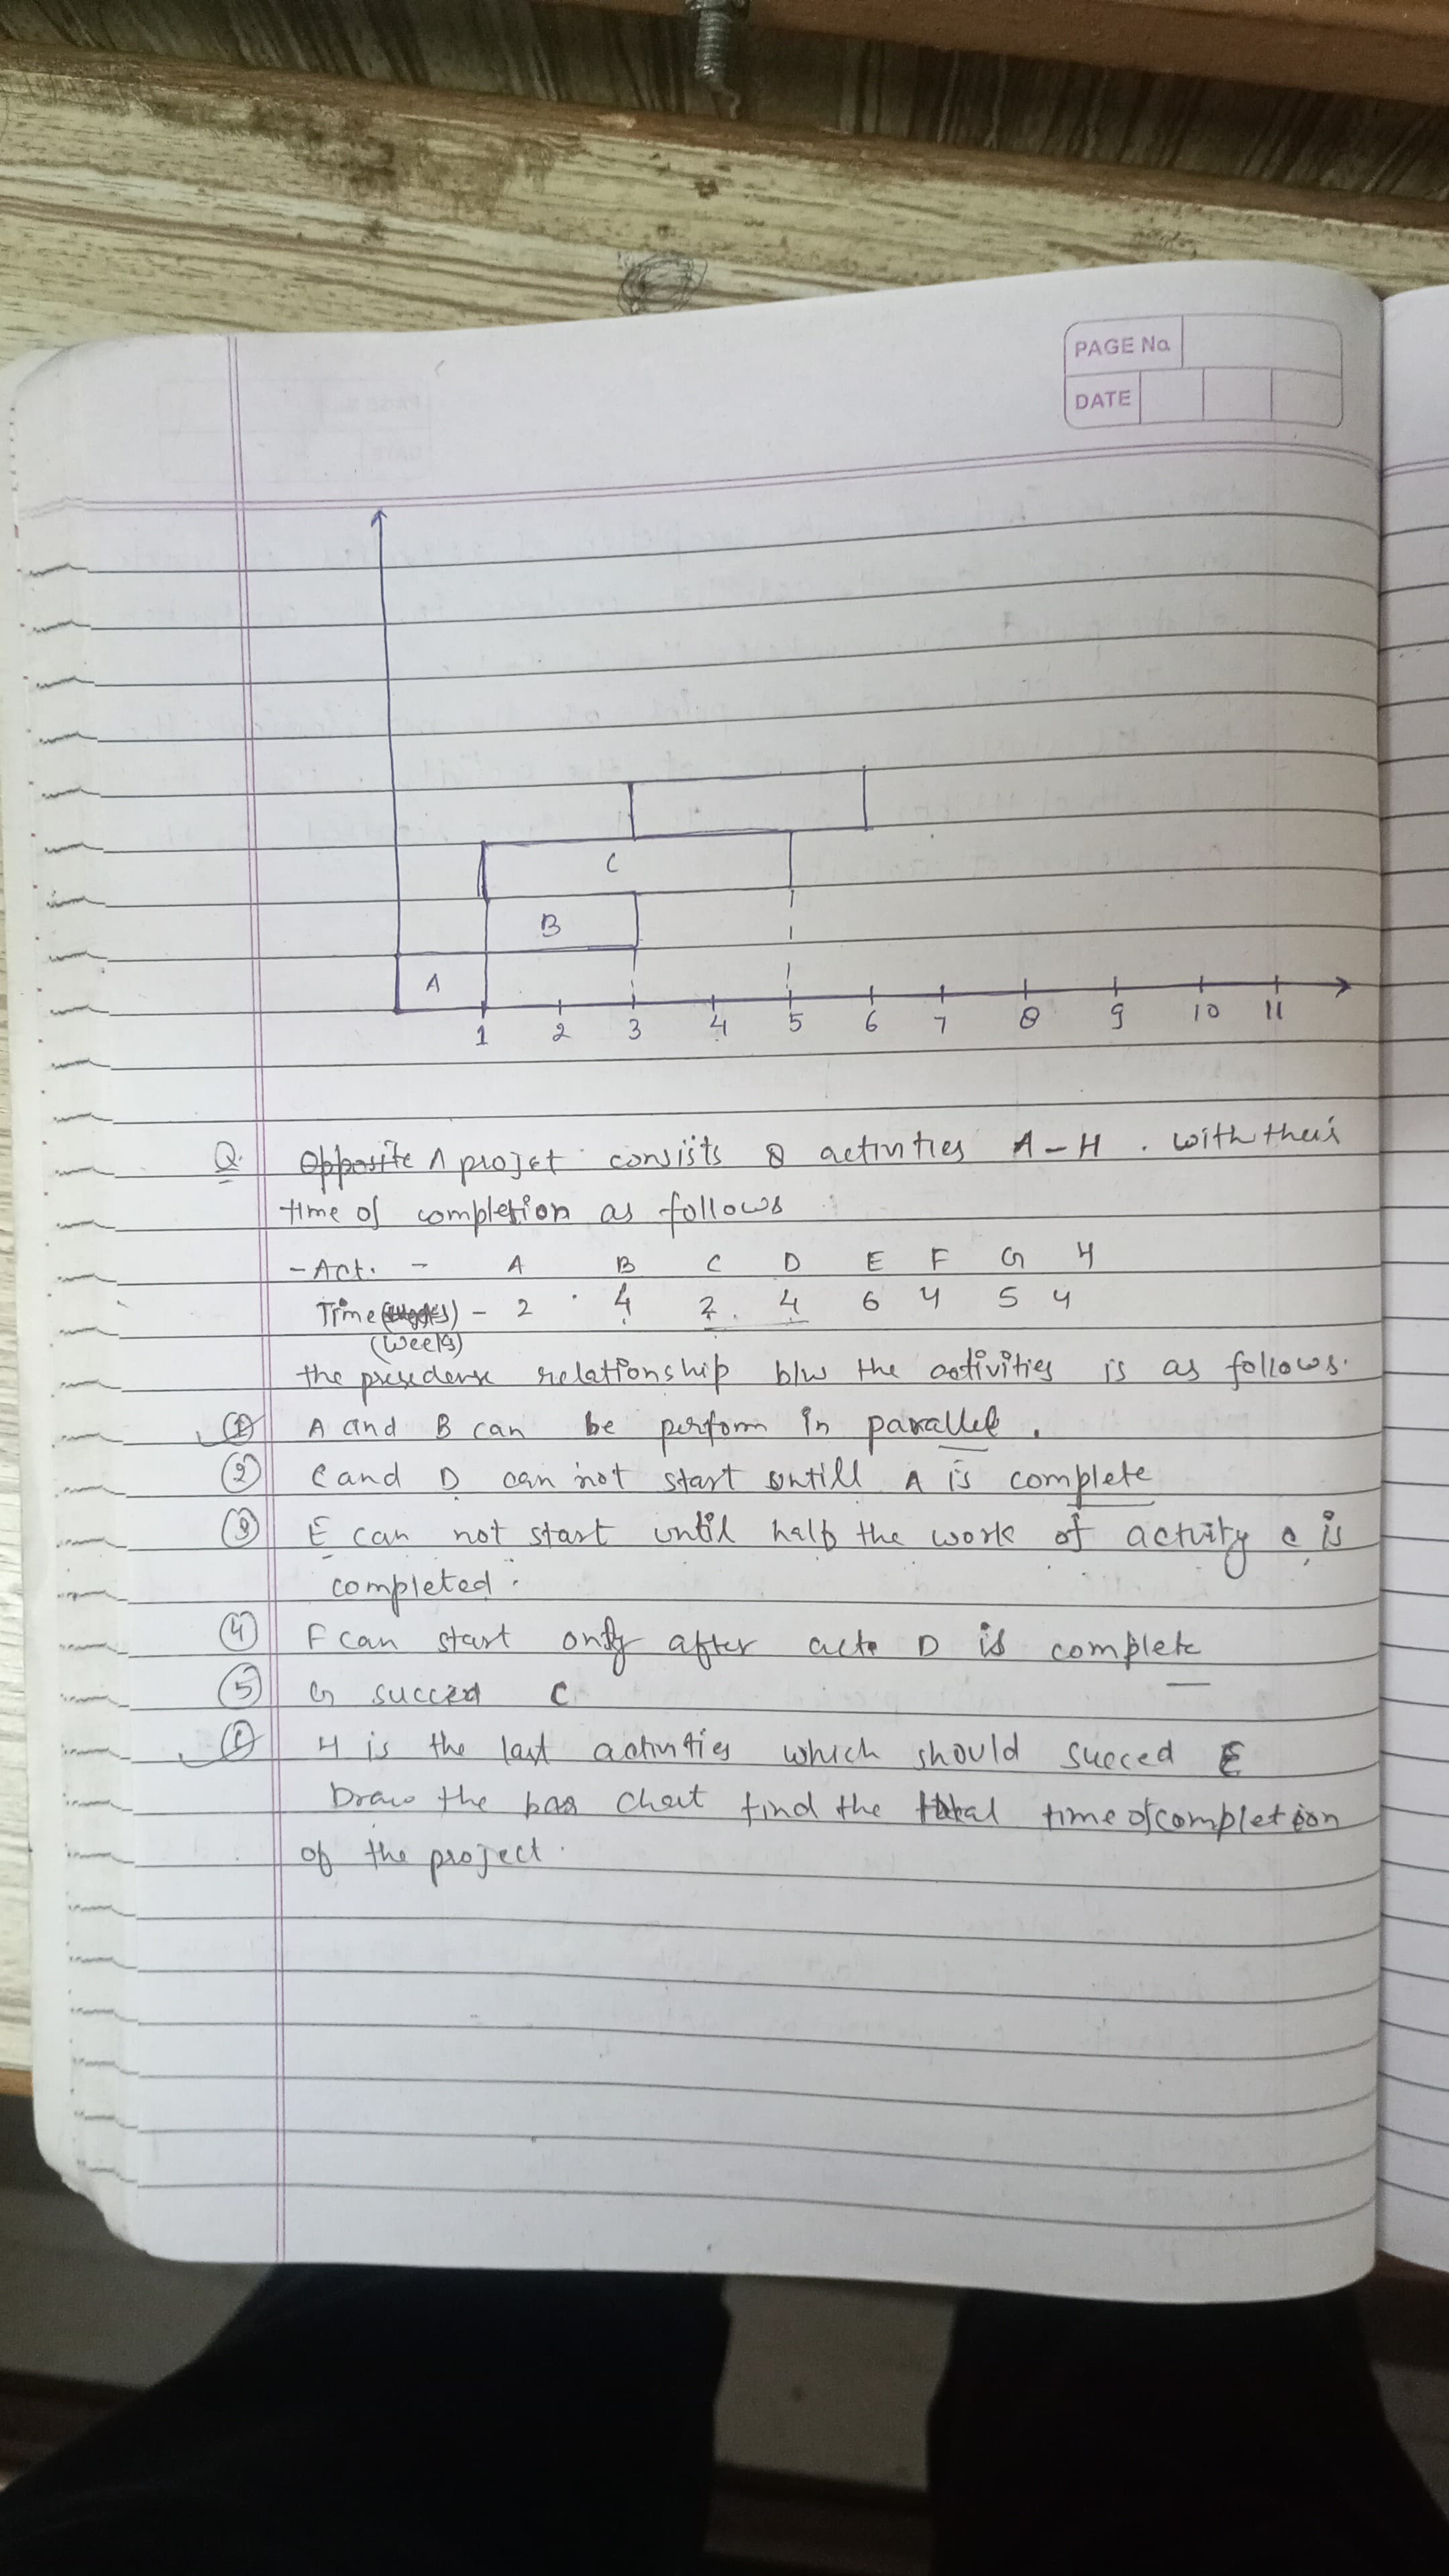 PAGE No.
DATE
C
B
A
1 2 3 4 5 6 7 8 9 10 11
Q. Opposite A projet consists 8 activities A - H . with their
time of completion as follows
- Act. - A B C D E F G H
Time - 2 4 2 4 6 4 5 4
(weeks)
the relationship b/w the activities is as follows.
① A and B can be perform in parallel.
② C and D can not start untill A is complete
③ E can not start until half the work of activity c is
completed.
④ F can start only after D is complete
⑤ G succed C
⑥ H is the last activities which should succed E
Draw the bar chart find the total time of completion
of the project.